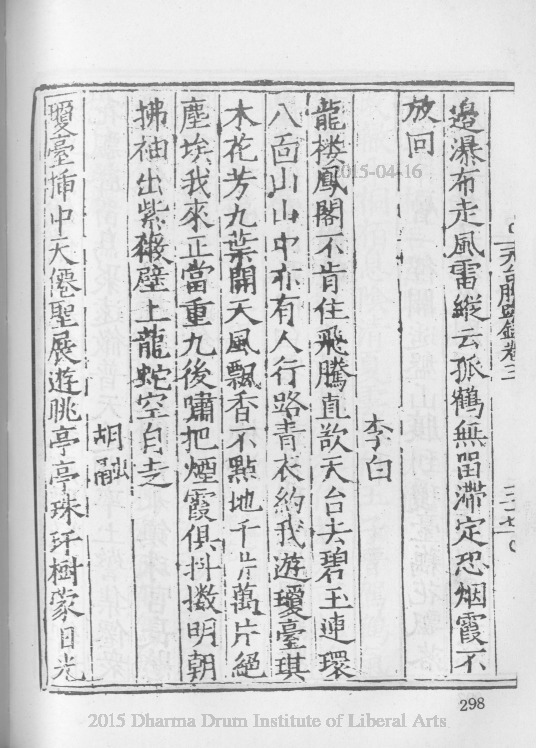 天台勝蹟錄卷三
三七
邉瀑布走風雷縱云孤鶴無畱滯定恐烟霞不
放回
李白
龍楼鳳閣不肯住飛騰直欲天台去碧玉連環
八面山山中亦有人行路青衣約我遊瓊臺琪
木花芳九葉開天風飄香不點地千片萬片絕
塵埃我來正當重九後嘯把煙霞俱抖擻明朝
拂袖出紫薇壁上龍蛇空自走
胡融
瓊臺揷中天僊聖展遊眺亭亭珠玗樹蒙日光
298
2015-04-16
2015 Dharma Drum Institute of Liberal Arts